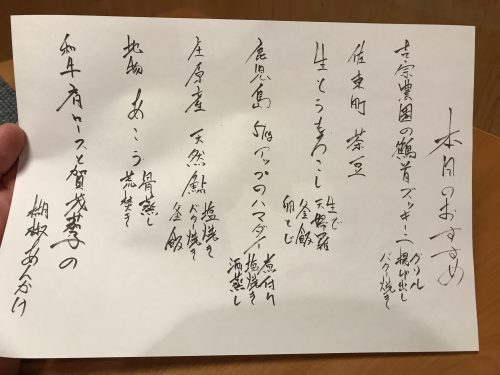 本日のおすすめ
吉宗農園の鶴首ズッキーニ
グリル
揚げ出し
バター焼き
佐東町 茶豆
生とうもろこし
生で
天婦羅
釜飯
卵とじ
鹿児島 5kgアップのハマダイ
煮付け
塩焼き
酒蒸し
庄原産 天然鮎
塩焼き
バター焼き
釜飯
地物 あこう
骨蒸し
荒焚き
和牛肩ロースと賀茂茄子の
胡椒あんかけ